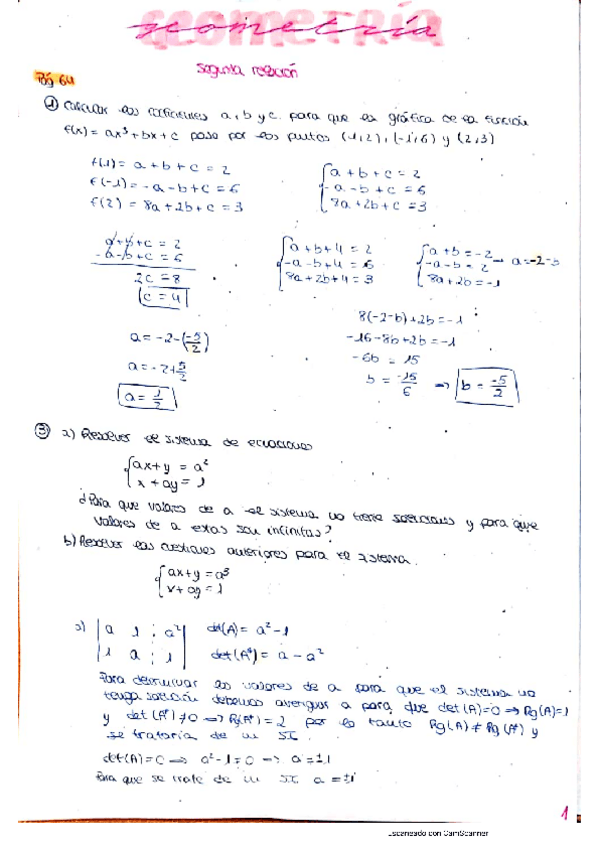 Geometría
geometría
segunda relación
Pág 64
① Calcular los coeficientes a, b y c para que la gráfica de la función
f(x) = ax³ + bx + c pase por los puntos (1,2), (-1,6) y (2,3)
f(1) = a + b + c = 2
f(-1) = -a - b + c = 6
f(2) = 8a + 2b + c = 3
a + b + c = 2
-a - b + c = 6
8a + 2b + c = 3
a + b + c = 2
-a - b + c = 6
2c = 8
c = 4
a + b + 4 = 2
-a - b + 4 = 6
8a + 2b + 4 = 3
a + b = -2 → a = -2 - b
-a - b = 2
8a + 2b = -1
8(-2-b) + 2b = -1
-16 - 8b + 2b = -1
-6b = 15
b = -15/6 ⇒ b = -5/2
a = -2 - (-5/2)
a = -2 + 5/2
a = 1/2
③ a) Resolver el sistema de ecuaciones
ax + y = a²
x + ay = 1
¿Para que valores de a el sistema no tiene soluciones y para que
valores de a estas son infinitas?
b) Resolver las cuestiones anteriores para el sistema.
ax + y = a³
x + ay = 1
a) | a 1 ⋮ a² | det(A) = a² - 1
| 1 a ⋮ 1 | det(A*) = a - a²
Para determinar los valores de a para que el sistema no
tenga solución debemos averiguar a para que det(A)=0 ⇒ Rg(A)=1
y det(A*)≠0 ⇒ Rg(A*)=2 por lo tanto Rg(A) ≠ Rg(A*) y
se trataría de un SI.
det(A) = 0 ⇒ a² - 1 = 0 → a = ±1
Para que se trate de un SI a = ±1
1
Escaneado con CamScanner